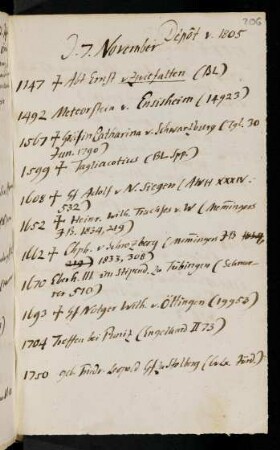 206
D. 7. November Depôt v. 1805
1147 + Abt Ernst v. Zwiefalten (BL)
1492 Meteorstein v. Ensisheim (14923)
1567 + Gräfin Catharina v. Schwarzburg (Zgl. 30
Jun. 1790)
1599 + Tagliacotius (BL. Spp.)
1608 + Gf Adolf v. N. Siegen (
532)
1652 + Heinr. Wilh. Truchses v. W (Memmingers
JB. 1834, 219)
1662 + v. (Memminger JB
219) 1833, 308)
1670 Eberh. III im Stipend. zu Tübingen (Schnur-
rer 510)
1693 + Gf Notger Wilh. v. Öttingen (19952)
1704 Treffen bei (Engelhard II 73)
1750 geb. Friedr. Leopold Gf zu Stolberg